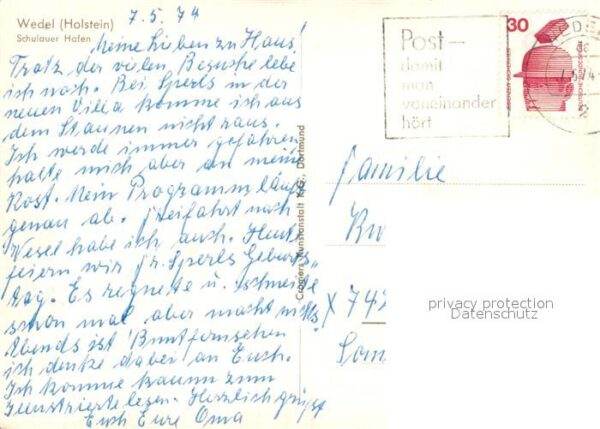 Wedel (Holstein)
Schulauer Hafen
7.5.74
Meine Lieben zu Haus!
Trotz der vielen Besuche lebe
ich noch. Bei Sperls in der
neuen Villa komme ich aus
dem Staunen nicht raus.
Ich werde immer gefahren
halte mich aber an meine
Kost. Mein Programm läuft
genau ab. Freifahrt nach
Wesel habe ich auch. Heute
feiern wir Fr. Sperls Geburts-
tag. Es regnete u. schneite
schon mal aber macht nichts.
Abends ist Buntfernsehen
ich denke dabei an Euch.
Ich komme kaum zum
Illustriertelesen. Herzlich grüßt
Euch Eure Oma
Cramers Kunstanstalt KG., Dortmund
Post-
damit
man
voneinander
hört
30
DEUTSCHE BUNDESPOST
Familie
X 742
privacy protection
Datenschutz